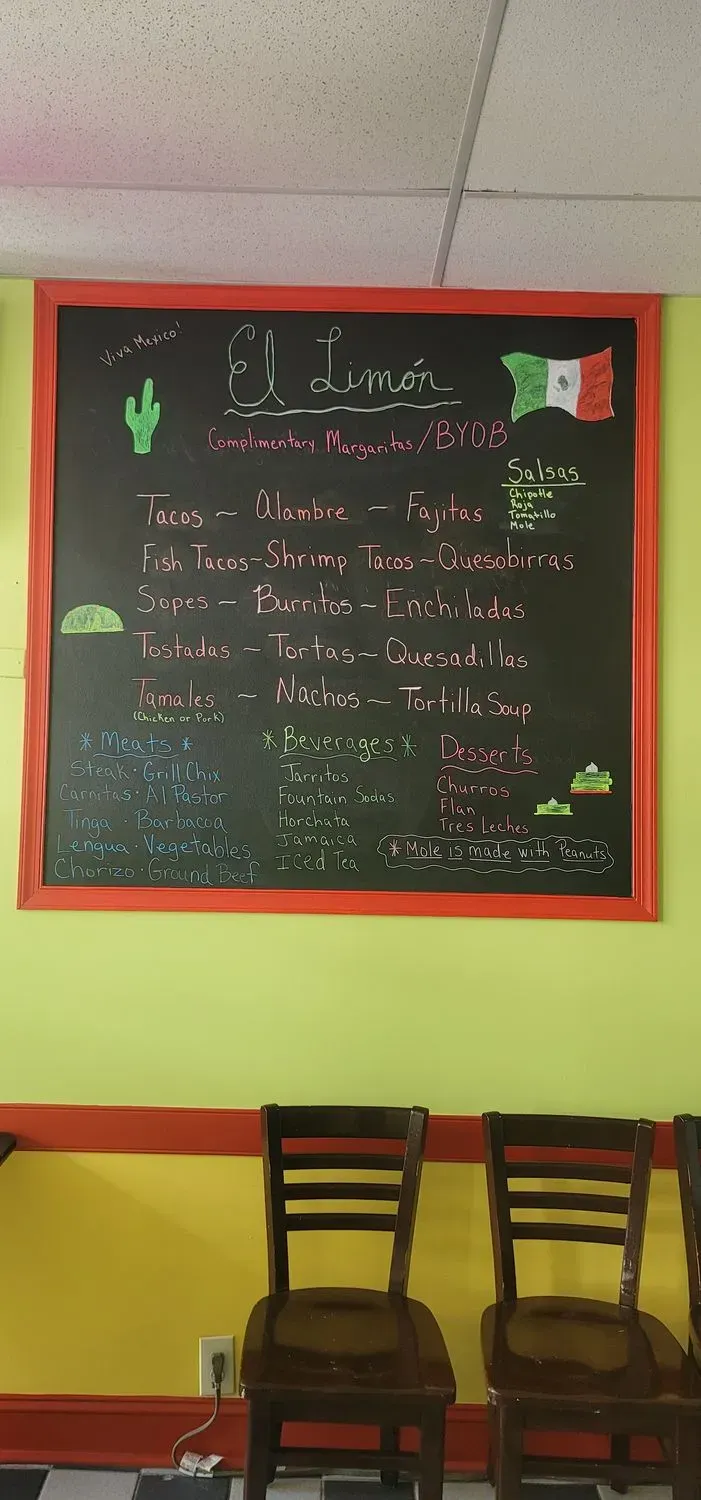 Viva Mexico!
El Limón
Complimentary Margaritas/BYOB
Salsas
Chipotle
Roja
Tomatillo
Mole
Tacos ~ Alambre ~ Fajitas
Fish Tacos~Shrimp Tacos~Quesobirras
Sopes ~ Burritos~Enchiladas
Tostadas ~ Tortas~Quesadillas
Tamales ~ Nachos ~ Tortilla Soup
(Chicken or Pork)
* Meats *
Steak · Grill Chix
Carnitas · Al Pastor
Tinga · Barbacoa
Lengua · Vegetables
Chorizo · Ground Beef
* Beverages *
Jarritos
Fountain Sodas
Horchata
Jamaica
Iced Tea
Desserts
Churros
Flan
Tres Leches
* Mole is made with Peanuts